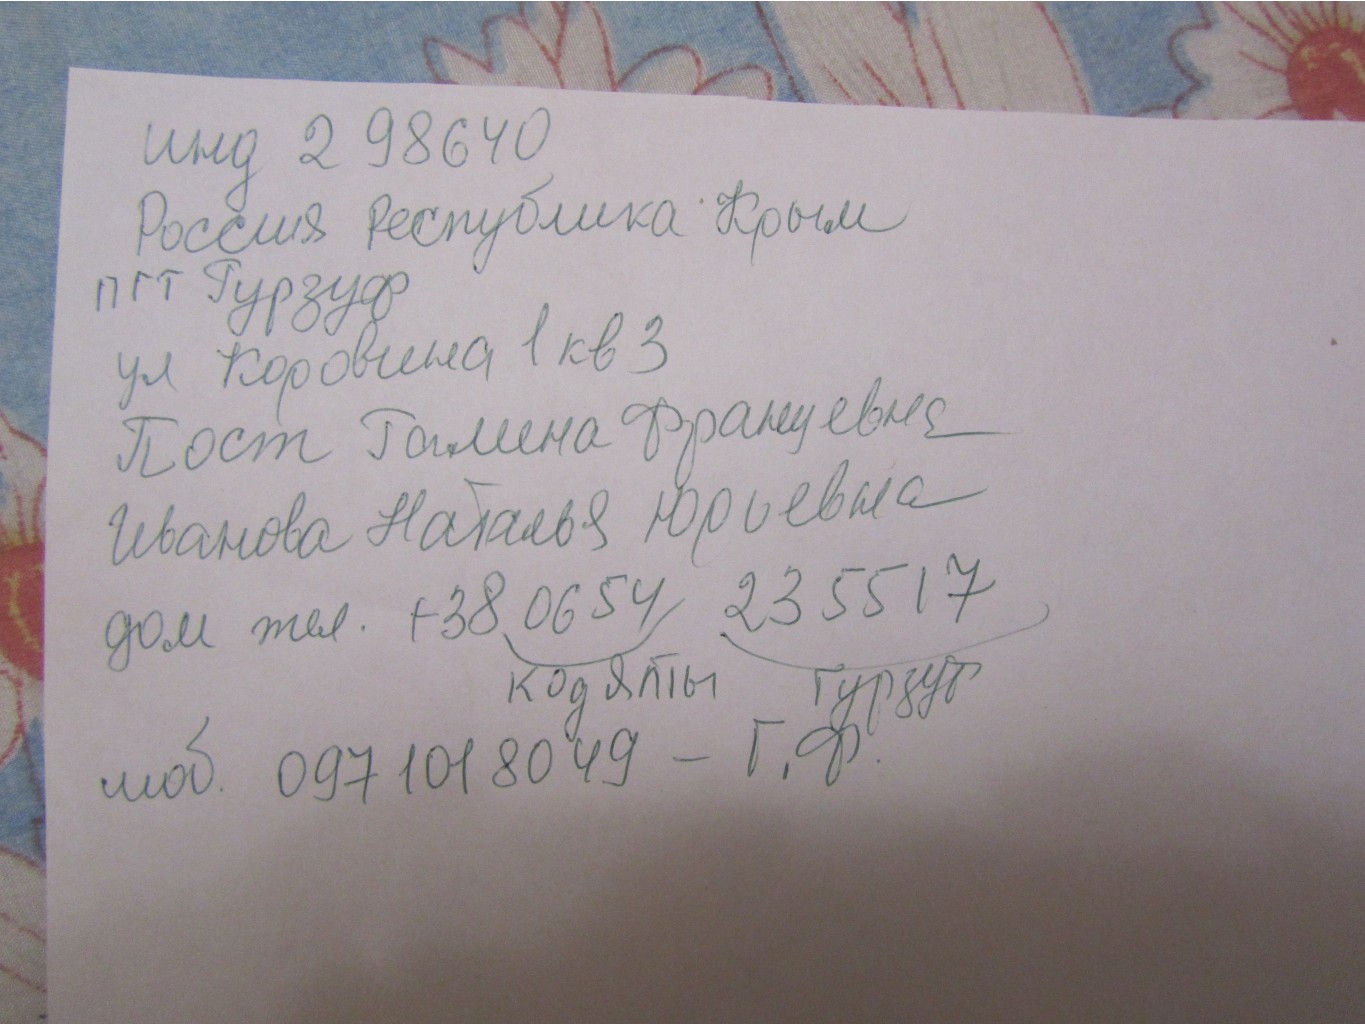 инд 298640
Россия Республика Крым
пгт Гурзуф
ул Коровина 1 кв 3
Пост Галина Францевна
Иванова Наталья Юрьевна
дом тел. +38 0654 235517
код Ялты Гурзуф
моб. 0971018049 – Г.Ф.